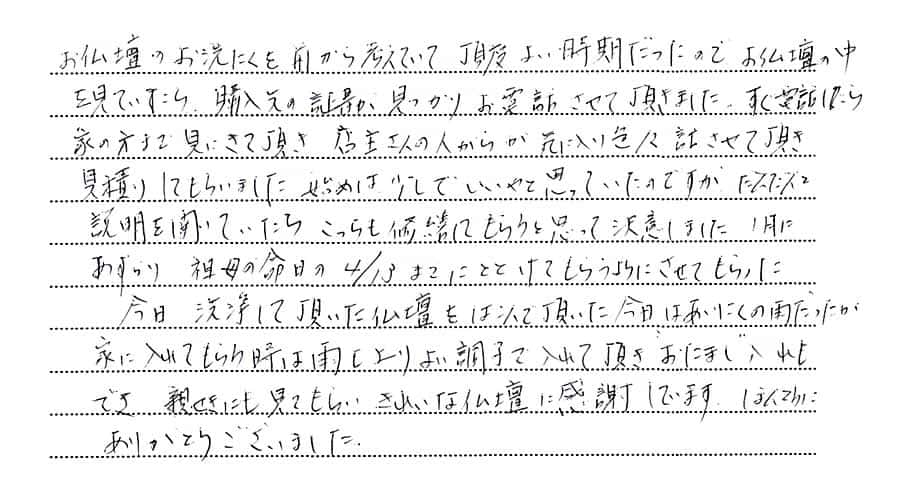 お仏壇のお洗たくを前から考えていて 頂度よい時期だったので お仏壇の中
を見ていたら、購入先の証書が見つかりお電話させて頂きました。すぐ電話したら
家の方まで見にきて頂き 店主さんの人がらが気に入り色々話させて頂き
見積りしてもらいました 始めは少しでいいやと思っていたのですが だんだんと
説明を聞いていたら こっちも修繕してもらうと思って決意しました 1月に
あずかり 祖母の命日の4/13までにとどけてもらうようにさせてもらった
今日 洗浄して頂いた仏壇をはこんで頂いた 今日はあいにくの雨だったが
家に入れてもらう時は雨も上りよい調子で入れて頂き おたましい入れも
でき 親せきにも見てもらい きれいな仏壇に感謝しています ほんとうに
ありがとうございました.